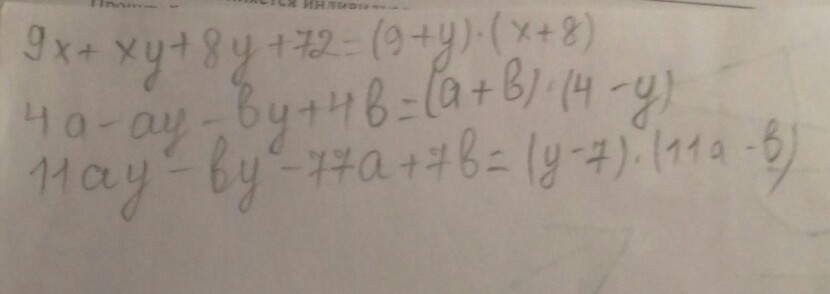 9x+xy+8y+72=(9+y)·(x+8)
4a-ay-by+4b=(a+b)·(4-y)
11ay-by-77a+7b=(y-7)·(11a-b)